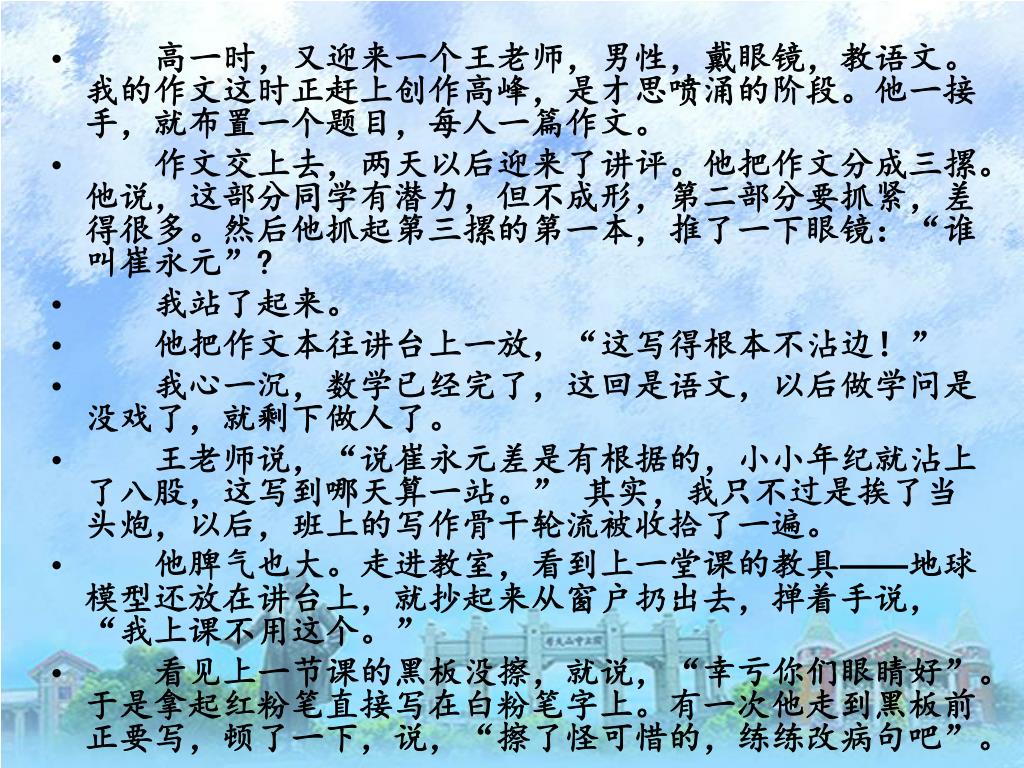 • 高一时，又迎来一个王老师，男性，戴眼镜，教语文。
我的作文这时正赶上创作高峰，是才思喷涌的阶段。他一接
手，就布置一个题目，每人一篇作文。
• 作文交上去，两天以后迎来了讲评。他把作文分成三摞。
他说，这部分同学有潜力，但不成形，第二部分要抓紧，差
得很多。然后他抓起第三摞的第一本，推了一下眼镜：“谁
叫崔永元”?
• 我站了起来。
• 他把作文本往讲台上一放，“这写得根本不沾边！”
• 我心一沉，数学已经完了，这回是语文，以后做学问是
没戏了，就剩下做人了。
• 王老师说，“说崔永元差是有根据的，小小年纪就沾上
了八股，这写到哪天算一站。” 其实，我只不过是挨了当
头炮，以后，班上的写作骨干轮流被收拾了一遍。
• 他脾气也大。走进教室，看到上一堂课的教具——地球
模型还放在讲台上，就抄起来从窗户扔出去，掸着手说，
“我上课不用这个。”
• 看见上一节课的黑板没擦，就说，“幸亏你们眼睛好”。
于是拿起红粉笔直接写在白粉笔字上。有一次他走到黑板前
正要写，顿了一下，说，“擦了怪可惜的，练练改病句吧”。